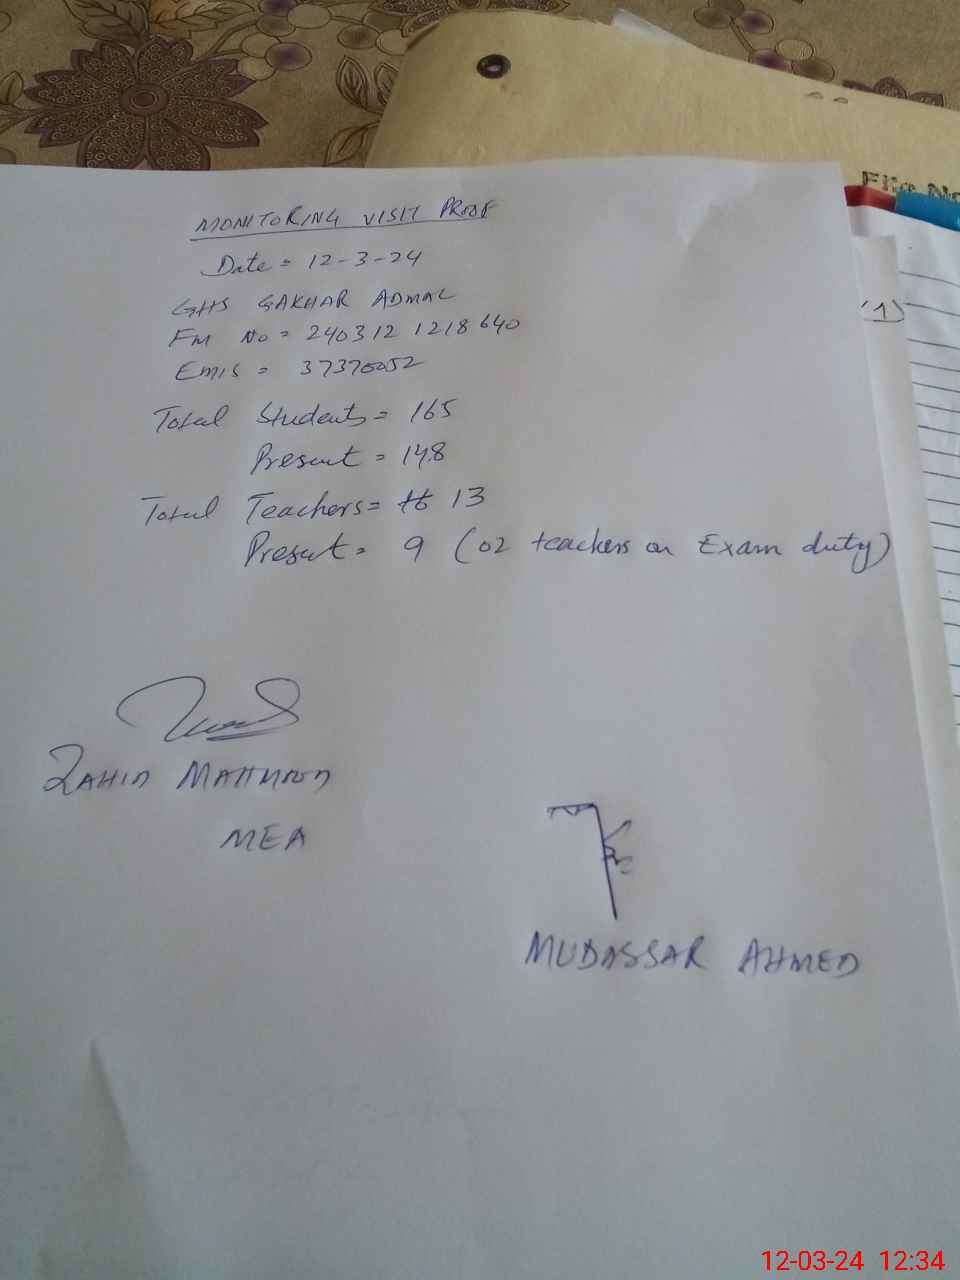 MONITORING VISIT PROOF
Date = 12-3-24
GHS GAKHAR ADMAL
FM No = 240312 1218640
Emis = 37370052
Total Students = 165
Present = 148
Total Teachers = 13
Present = 9 (02 teachers on Exam duty)
ZAHID MAHMOOD
MEA
MUDASSAR AHMED
File No
(1)
12-03-24 12:34